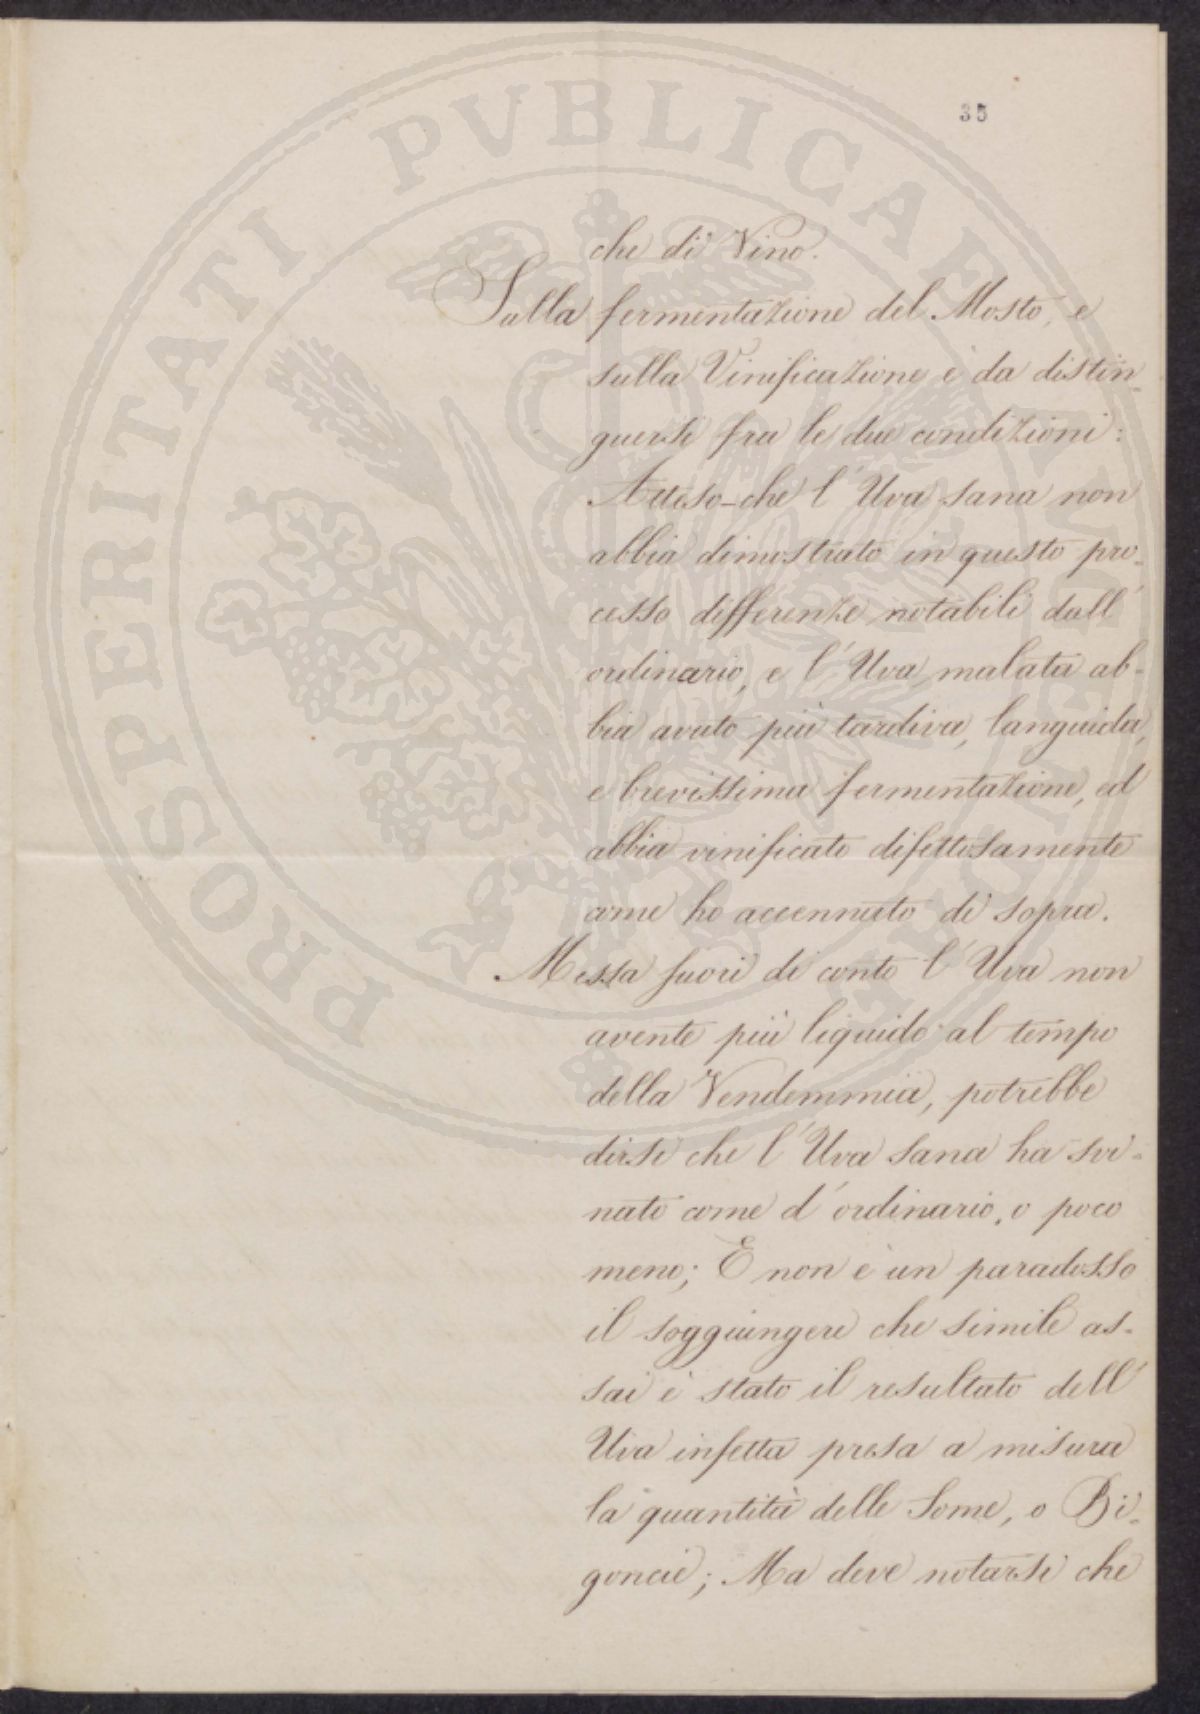 35
che di Vino.
Sulla fermentazione del Mosto, e
sulla Vinificazione è da distin-
guersi fra le due condizioni:
Atteso-che l'Uva sana non
abbia dimostrato in questo pro-
cesso differenze notabili dall'
ordinario, e l'Uva malata ab-
bia avuto più tardiva, languida,
e brevissima fermentazione, ed
abbia vinificato difettosamente
come ho accennato di sopra.
Messa fuori di conto l'Uva non
avente più liquido al tempo
della Vendemmia, potrebbe
dirsi che l'Uva sana ha svi-
nato come d'ordinario, o poco
meno; E non è un paradosso
il soggiungere che simile as-
sai è stato il resultato dell'
Uva infetta presa a misura
la quantità delle Some, o Bi-
goncie; Ma deve notarsi che
PROSPERITATI PVBLICAE AVGENDAE